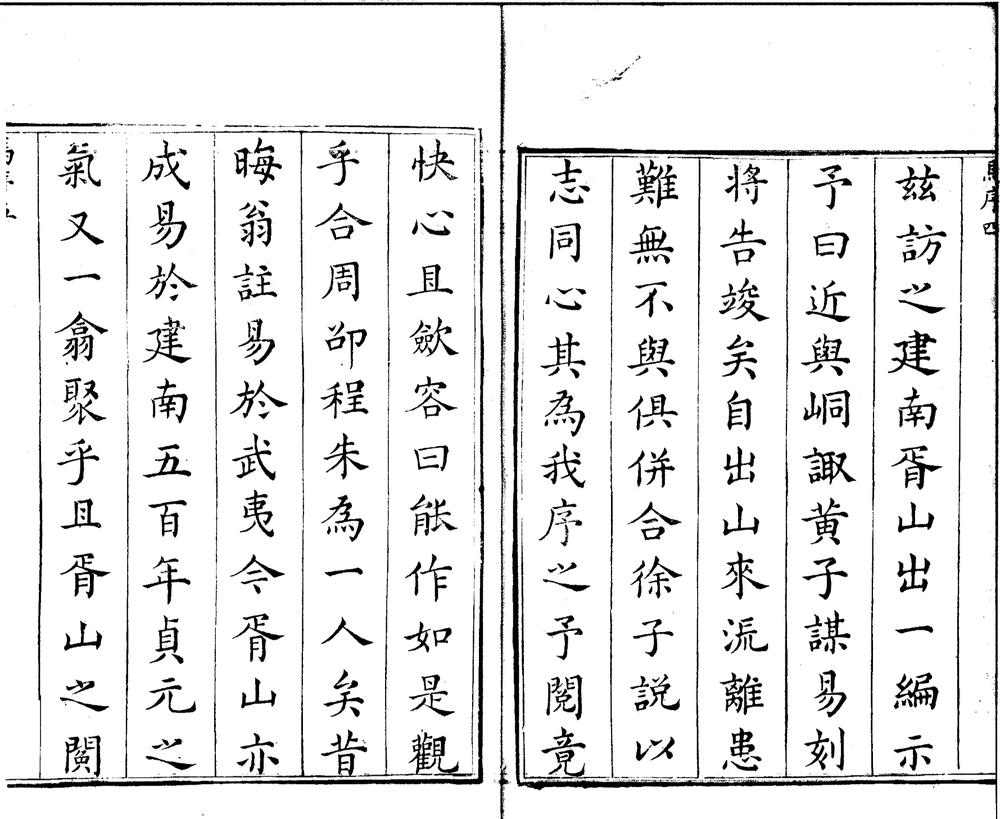 馬序四
茲訪之建南胥山出一編示
予曰近與峒諏黃子謀易刻
將告竣矣自出山來流離患
難無不與俱併合徐子說以
志同心其為我序之予閱竟
快心且斂容曰能作如是觀
乎合周邵程朱為一人矣昔
晦翁註易於武夷今胥山亦
成易於建南五百年貞元之
氣又一翕聚乎且胥山之闃